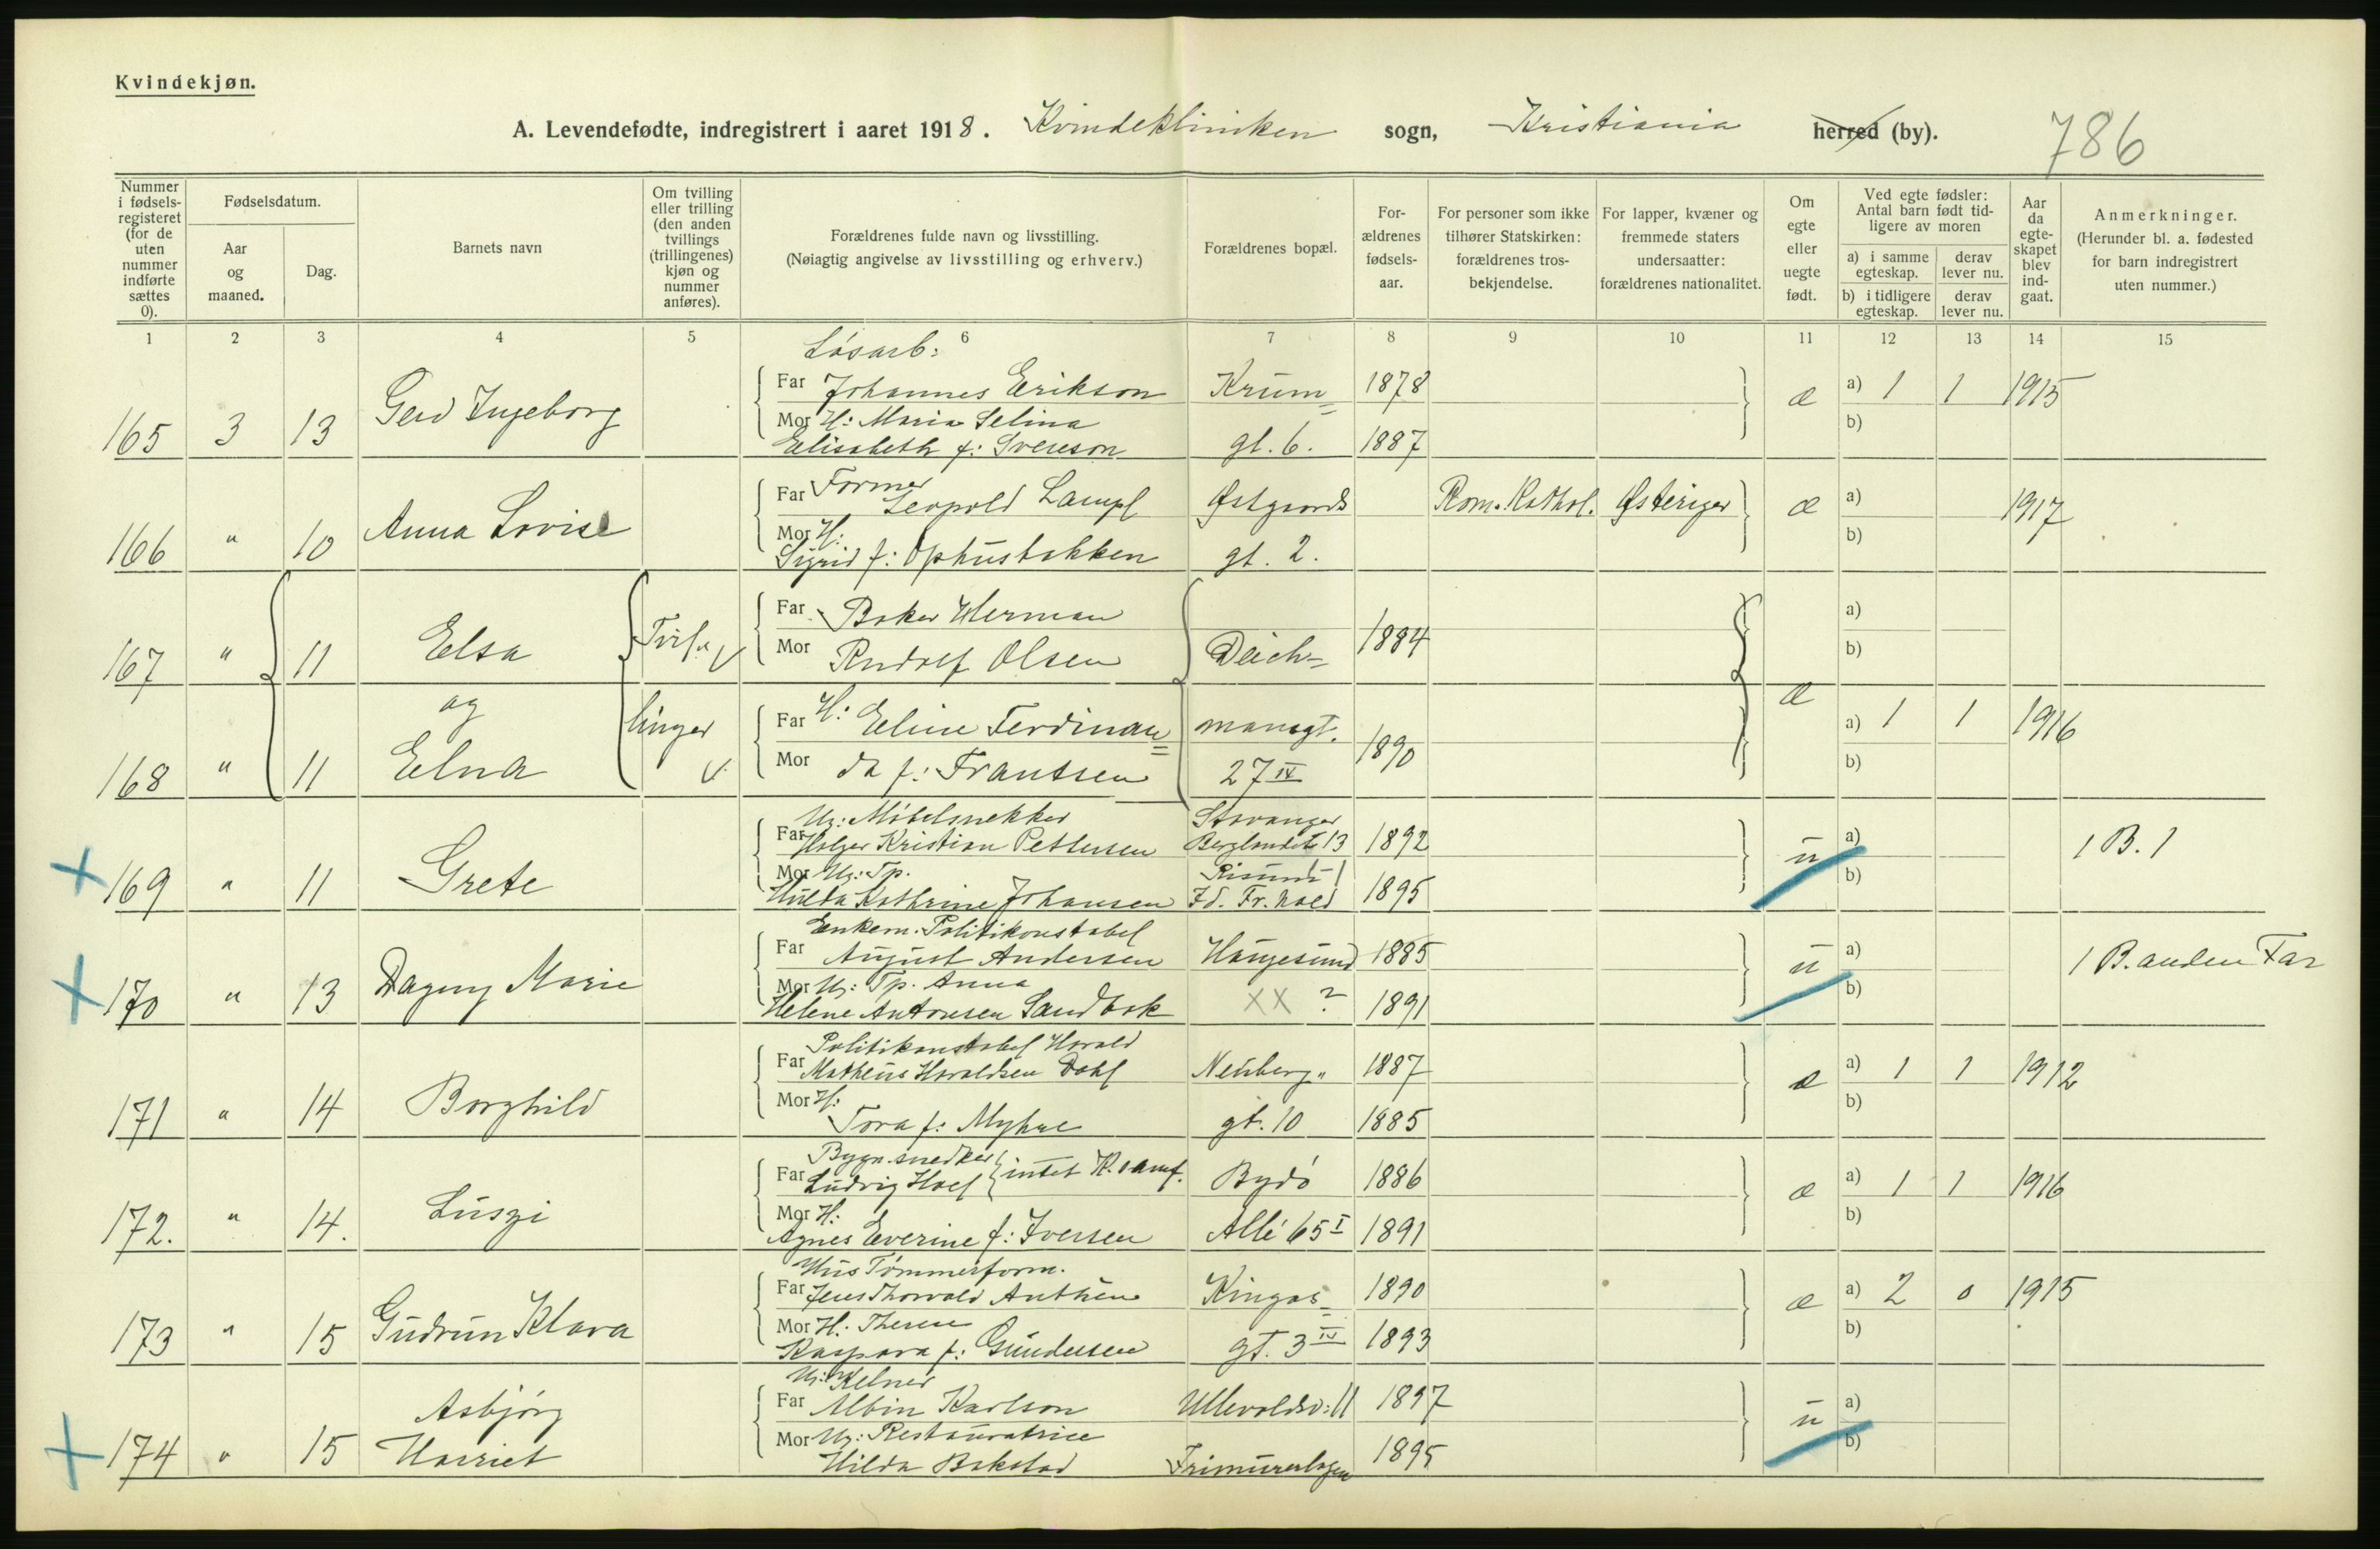 Kvindekjøn.
A. Levendefødte, indregistrert i aaret 1918. Kvindeklinikken sogn, Kristiania herred (by).
786
Nummer i fødsels-registeret (for de uten nummer indførte sættes 0).
Fødselsdatum.
Aar og maaned.
Dag.
Barnets navn
Om tvilling eller trilling (den anden tvillings (trillingenes) kjøn og nummer anføres).
Forældrenes fulde navn og livsstilling.
(Nøiagtig angivelse av livsstilling og erhverv.)
Forældrenes bopæl.
For-ældrenes fødsels-aar.
For personer som ikke tilhører Statskirken: forældrenes tros-bekjendelse.
For lapper, kvæner og fremmede staters undersaatter: forældrenes nationalitet.
Om egte eller uegte født.
Ved egte fødsler: Antal barn født tid-ligere av moren
a) i samme egteskap.
derav lever nu.
b) i tidligere egteskap.
derav lever nu.
Aar da egte-skapet blev ind-gaat.
Anmerkninger.
(Herunder bl. a. fødested for barn indregistrert uten nummer.)
1 2 3 4 5 6 7 8 9 10 11 12 13 14 15
Løsarb:
Far Johannes Erikson Krum= 1878 a) 1 1 1915
165 3 13 Gerd Ingeborg æ
Mor H: Maria Selina b)
Elisabeth f: Svereson gt. 6. 1887
Former
Far Leopold Lampl Østgaards Rom. Kathol. Østeriger a) 1917
166 " 10 Anna Lovise æ
Mor H: b)
Sigrid f: Ophusbakken gt. 2.
Far Baker Herman a)
167 " 11 Elsa Tvil- 1884
Mor Rudolf Olsen Deich- b)
og
Far H: Eline Ferdinan= mansgt. æ a) 1 1 1916
168 " 11 Elna linger 1890
Mor da f: Frantsen 27 IV b)
U: Møbelsnekker Stavanger
Far Holger Kristian Pettersen Berglandsgt 13 1892 a)
169 " 11 Grete u 1 B. 1
Mor U: Tp. b)
Hulda Kathrine Johansen Fr. Hald 1895
Enkem. Politikonstabel
Far August Andersen Haugesund 1885 a)
170 " 13 Dagny Marie u 1 B. anden Far
Mor U: Tp. Anna b)
Helene Antonsen Sandbak XX ? 1891
Politikonstabel Harald
Far Matheus Haraldsen Dahl Neuberg" 1887 a) 1 1 1912
171 " 14 Borghild æ
Mor H: b)
Tora f: Myhre gt. 10 1885
Bygn. snedker
Far Ludvig Hoel intet K. samf. Bygdø 1886 a) 1 1 1916
172. " 14. Luszi æ
Mor H: b)
Agnes Everine f: Iversen Allé 65 I 1891
Hus Tømmerform.
Far Jens Thorvald Anthun Kingos- 1890 a) 2 0 1915
173 " 15 Gudrun Klara æ
Mor H: Therese b)
Kaspara f: Gundersen gt. 3 IV 1893
U: Kelner
Far Albin Karlson Ullevoldsv: 11 1897 a)
174 " 15 Asbjørg Harriet u
Mor U: Restauratrice b)
Hilda Bakstad Frimurerlogen 1895